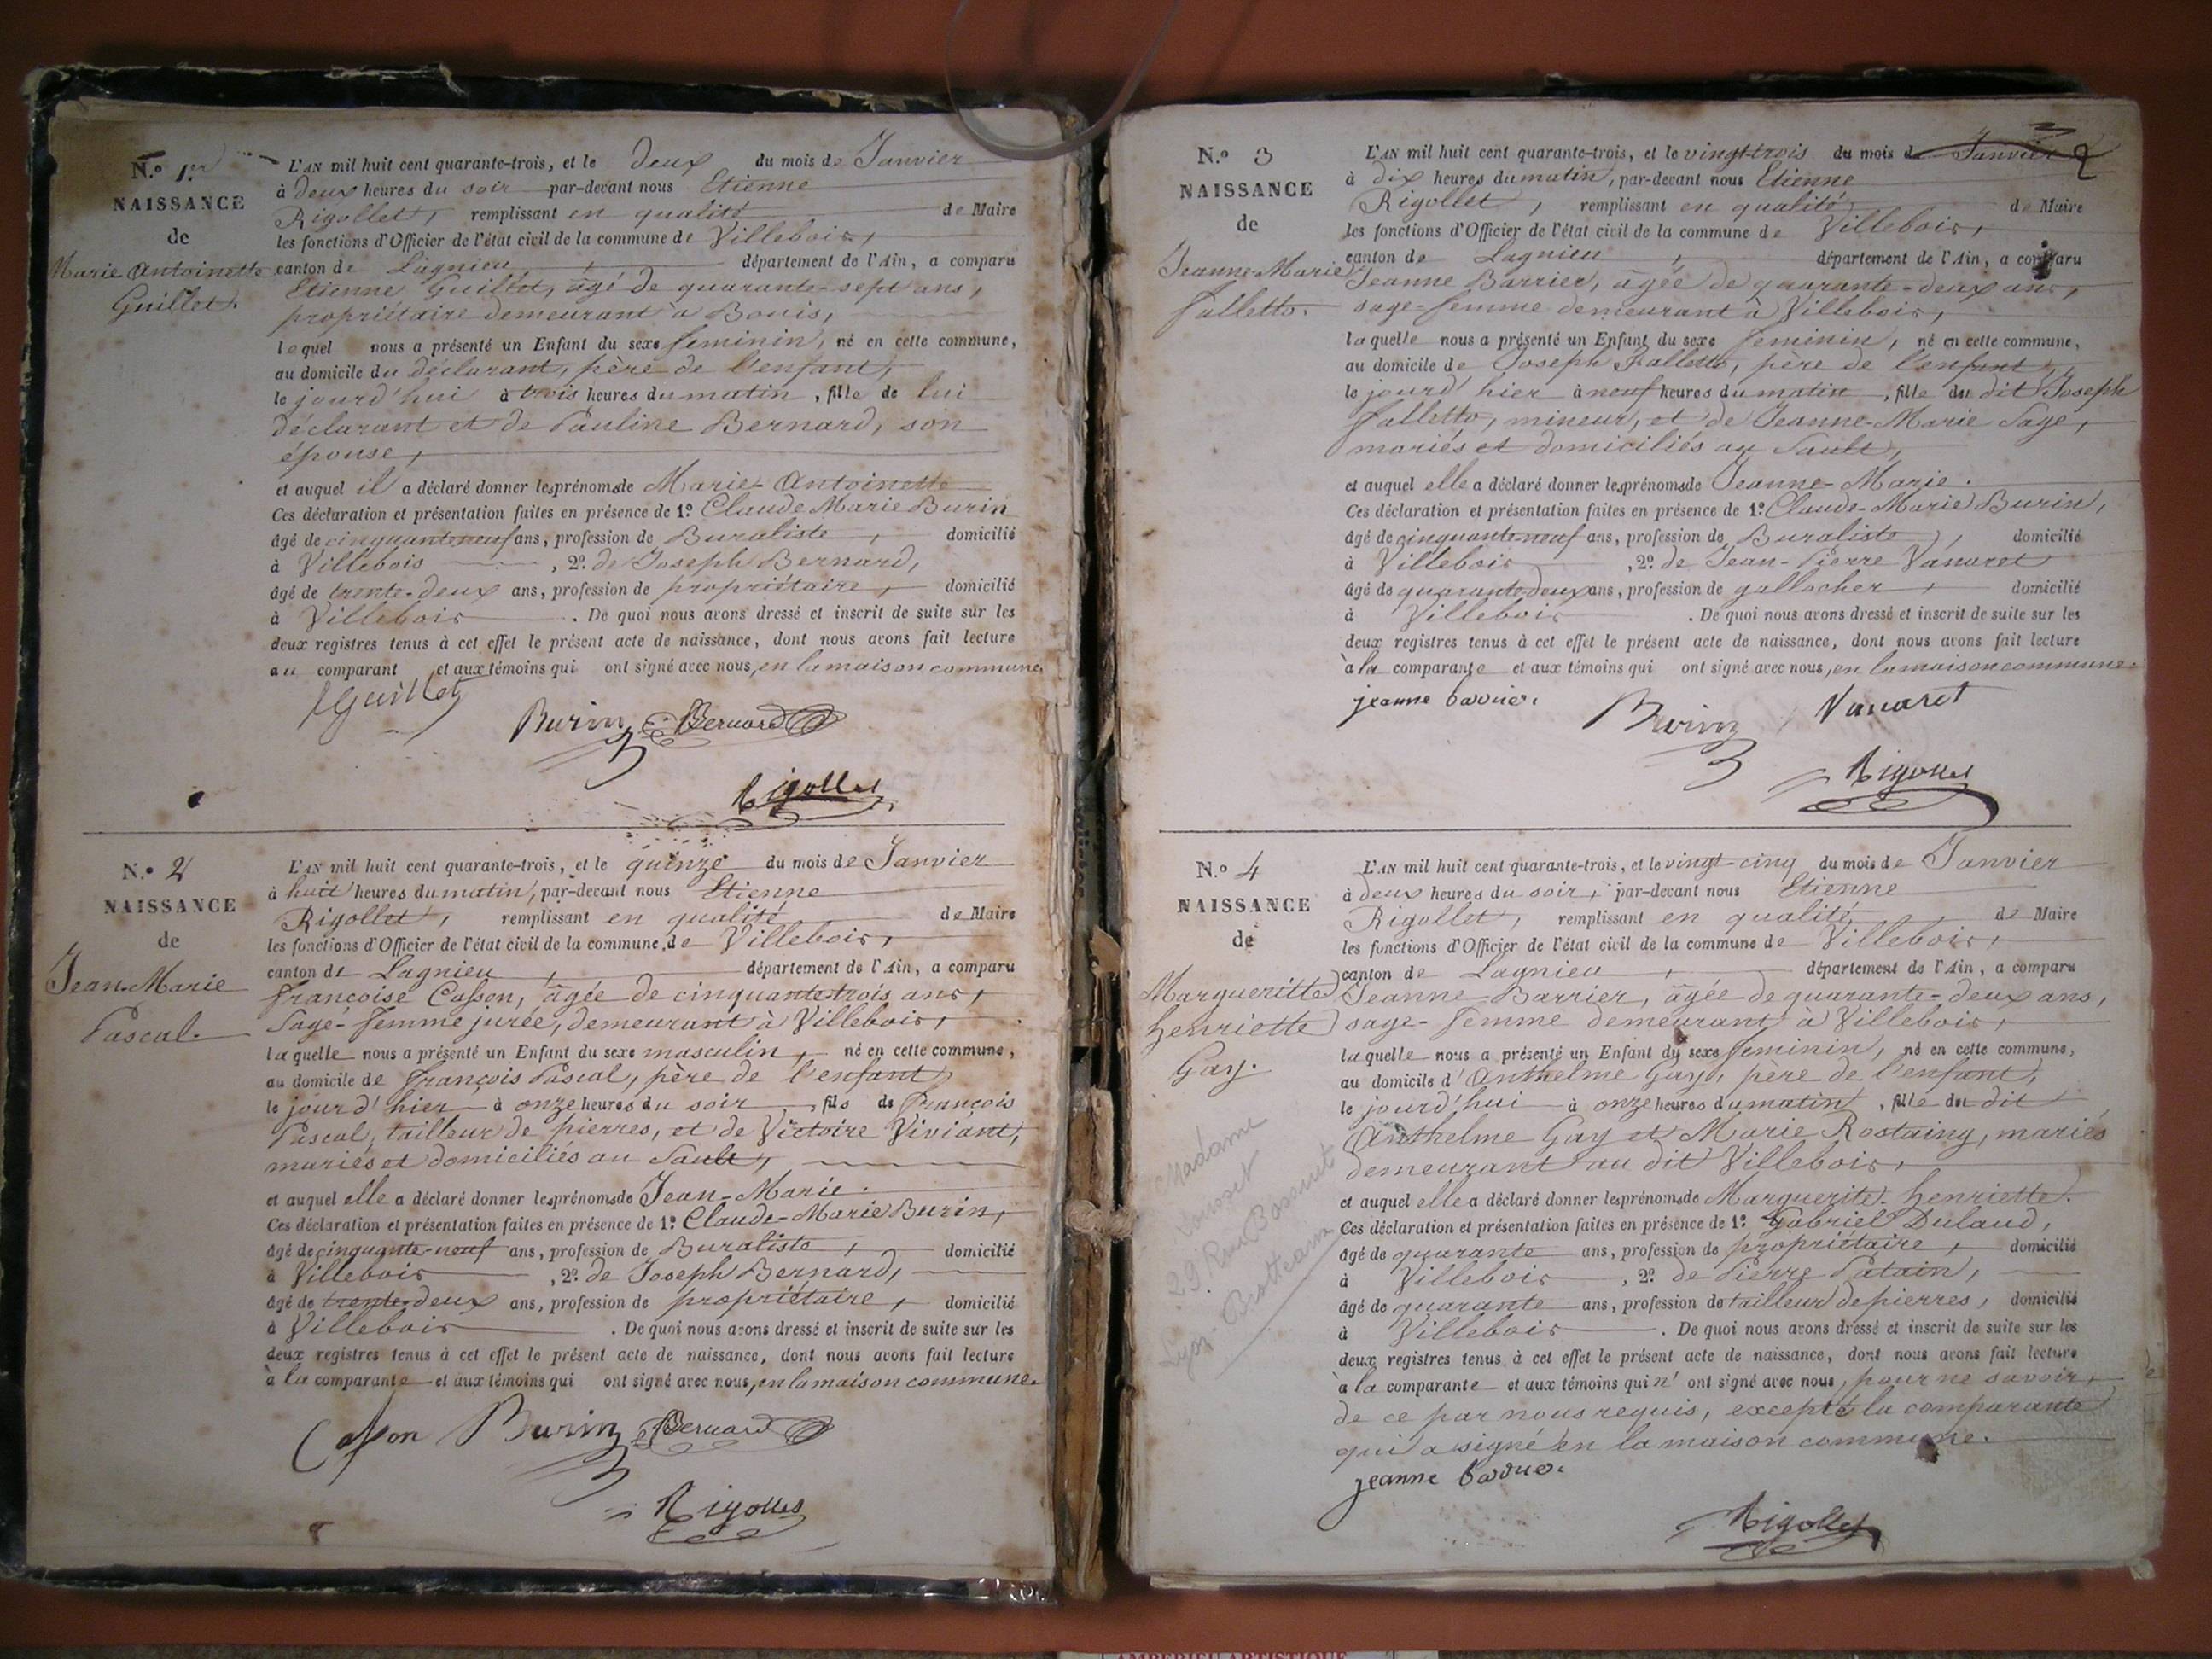 N.o 1.er
NAISSANCE
de
Marie Antoinette
Guillet.
L'AN mil huit cent quarante-trois, et le deux du mois de Janvier
à deux heures du soir par-devant nous Etienne
Rigollet, remplissant en qualité de Maire
les fonctions d'Officier de l'état civil de la commune de Villebois,
canton de Lagnieu, département de l'Ain, a comparu
Etienne Guillet, âgé de quarante-sept ans,
propriétaire demeurant à Bouis,
lequel nous a présenté un Enfant du sexe féminin, né en cette commune,
au domicile du déclarant, père de l'enfant,
le jourd'hui à trois heures du matin, fille de lui
déclarant et de Pauline Bernard, son
épouse,
et auquel il a déclaré donner les prénoms de Marie-Antoinette
Ces déclaration et présentation faites en présence de 1.o Claude Marie Burin
âgé de cinquante neuf ans, profession de Buraliste, domicilié
à Villebois, 2.o de Joseph Bernard,
âgé de trente-deux ans, profession de propriétaire, domicilié
à Villebois. De quoi nous avons dressé et inscrit de suite sur les
deux registres tenus à cet effet le présent acte de naissance, dont nous avons fait lecture
au comparant et aux témoins qui ont signé avec nous, en la maison commune.
Guillet
Burin Bernard
Rigollet
N.o 2
NAISSANCE
de
Jean-Marie
Pascal.
L'AN mil huit cent quarante-trois, et le quinze du mois de Janvier
à huit heures du matin, par-devant nous Etienne
Rigollet, remplissant en qualité de Maire
les fonctions d'Officier de l'état civil de la commune de Villebois,
canton de Lagnieu, département de l'Ain, a comparu
Françoise Casson, âgée de cinquante trois ans,
Sage-femme jurée, demeurant à Villebois,
laquelle nous a présenté un Enfant du sexe masculin, né en cette commune,
au domicile de François Pascal, père de l'enfant,
le jourd'hier à onze heures du soir, fils de François
Pascal, tailleur de pierres, et de Victoire Viviant,
mariés et domiciliés au Sault,
et auquel elle a déclaré donner les prénoms de Jean-Marie.
Ces déclaration et présentation faites en présence de 1.o Claude-Marie Burin,
âgé de cinquante-neuf ans, profession de Buraliste, domicilié
à Villebois, 2.o de Joseph Bernard,
âgé de trente-deux ans, profession de propriétaire, domicilié
à Villebois. De quoi nous avons dressé et inscrit de suite sur les
deux registres tenus à cet effet le présent acte de naissance, dont nous avons fait lecture
à la comparante et aux témoins qui ont signé avec nous, en la maison commune.
Casson Burin Bernard
Rigollet
N.o 3
NAISSANCE
de
Jeanne-Marie
Falletto.
L'AN mil huit cent quarante-trois, et le vingt-trois du mois de Janvier
à dix heures du matin, par-devant nous Etienne
Rigollet, remplissant en qualité de Maire
les fonctions d'Officier de l'état civil de la commune de Villebois,
canton de Lagnieu, département de l'Ain, a comparu
Jeanne Barrier, âgée de quarante-deux ans,
sage-femme demeurant à Villebois,
laquelle nous a présenté un Enfant du sexe féminin, né en cette commune,
au domicile de Joseph Falletto, père de l'enfant,
le jourd'hier à neuf heures du matin, fille du dit Joseph
Falletto, mineur, et de Jeanne-Marie Sage,
mariés et domiciliés au Sault,
et auquel elle a déclaré donner les prénoms de Jeanne-Marie.
Ces déclaration et présentation faites en présence de 1.o Claude-Marie Burin,
âgé de cinquante-neuf ans, profession de Buraliste, domicilié
à Villebois, 2.o de Jean-Pierre Vanaret
âgé de quarante deux ans, profession de gallocher, domicilié
à Villebois. De quoi nous avons dressé et inscrit de suite sur les
deux registres tenus à cet effet le présent acte de naissance, dont nous avons fait lecture
à la comparante et aux témoins qui ont signé avec nous, en la maison commune.
jeanne barrier
Burin Vanaret
Rigollet
N.o 4
NAISSANCE
de
Margueritte
Henriette
Gay.
Madame
29 Rue Bossuet
Lyon-Brotteaux
L'AN mil huit cent quarante-trois, et le vingt-cinq du mois de Janvier
à deux heures du soir, par-devant nous Etienne
Rigollet, remplissant en qualité, de Maire
les fonctions d'Officier de l'état civil de la commune de Villebois,
canton de Lagnieu, département de l'Ain, a comparu
Jeanne Barrier, âgée de quarante-deux ans,
sage-femme demeurant à Villebois,
laquelle nous a présenté un Enfant du sexe féminin, né en cette commune,
au domicile d'Anthelme Gay, père de l'enfant,
le jourd'hui à onze heures du matin, fille du dit
Anthelme Gay et Marie Rostaing, mariés
demeurant au dit Villebois,
et auquel elle a déclaré donner les prénoms de Marguerite-Henriette.
Ces déclaration et présentation faites en présence de 1.o Gabriel Dulaud,
âgé de quarante ans, profession de propriétaire, domicilié
à Villebois, 2.o de Pierre Patain,
âgé de quarante ans, profession de tailleur de pierres, domicilié
à Villebois. De quoi nous avons dressé et inscrit de suite sur les
deux registres tenus à cet effet le présent acte de naissance, dont nous avons fait lecture
à la comparante et aux témoins qui n'ont signé avec nous, pour ne savoir,
de ce par nous requis, excepté la comparante
qui a signé en la maison commune.
jeanne barrier
Rigollet